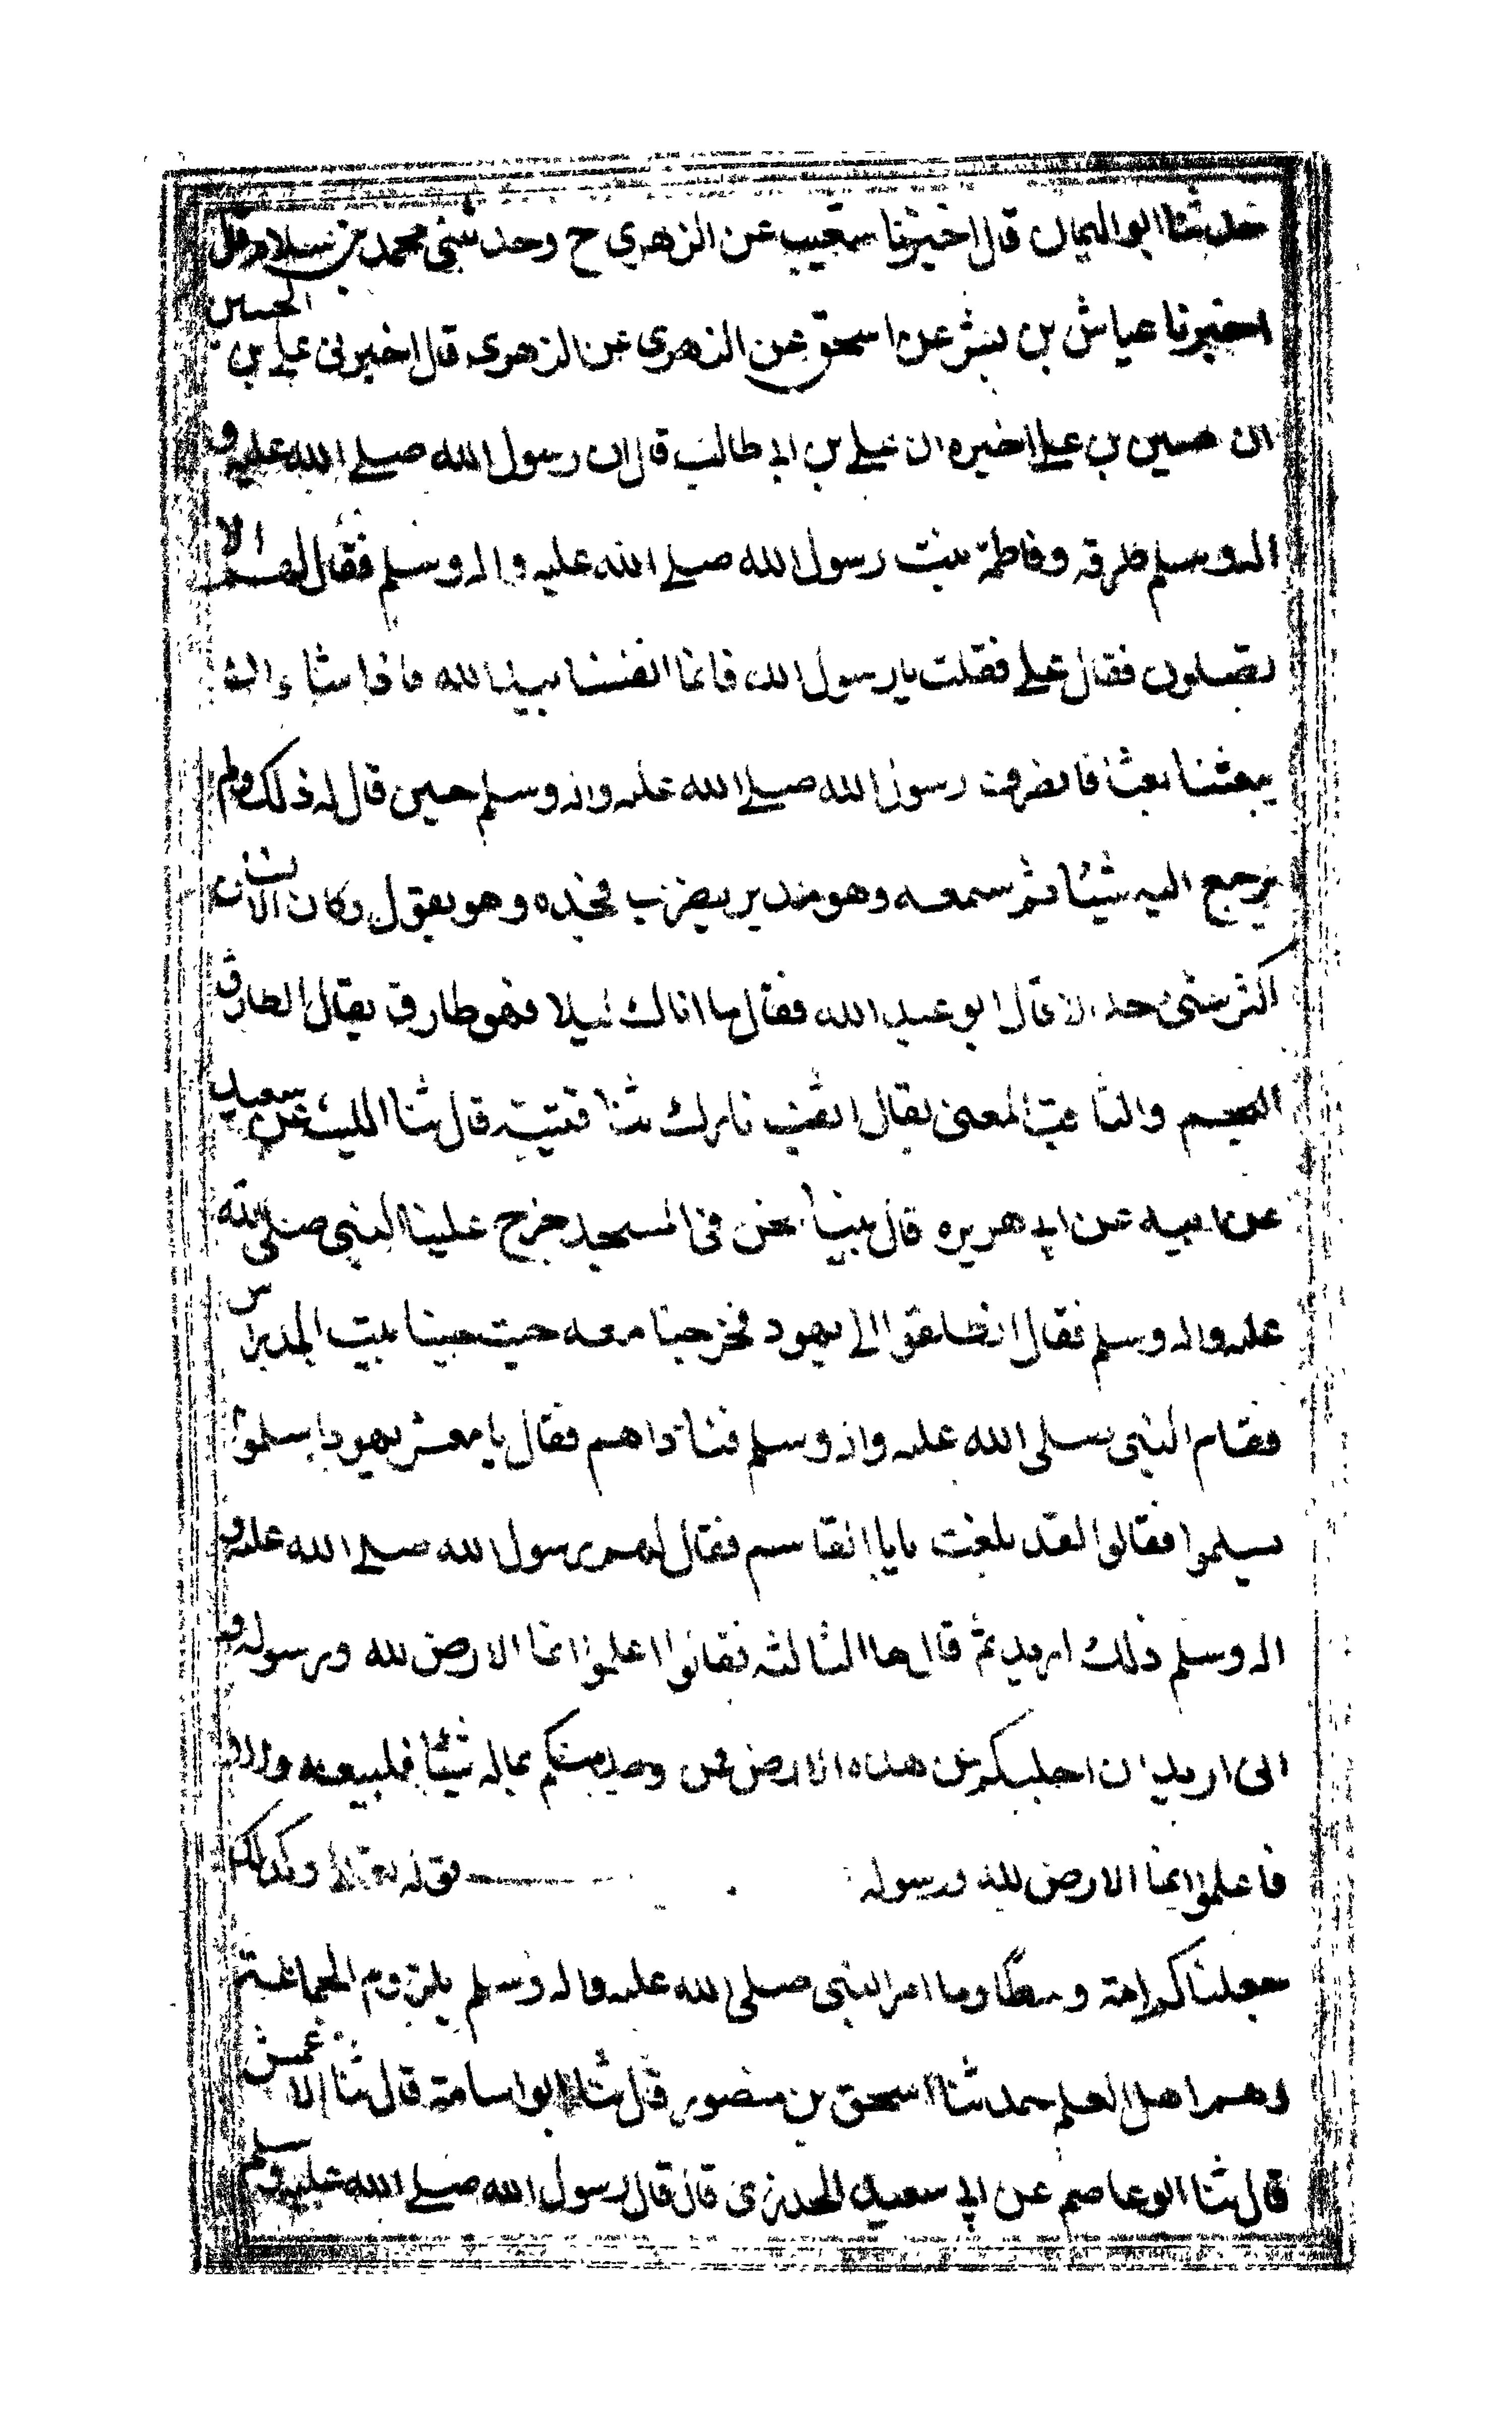 حدثنا ابو اليمان قال اخبرنا شعيب عن الزهري ح وحدثني محمد بن سلام قال
اخبرنا عياش بن بشر عن اسحق عن الزهرى عن الزهرى قال اخبرني علي بن الحسين
ان حسين بن علي اخبره ان علي بن ابي طالب قال ان رسول الله صلى الله عليه و
اله وسلم طرقه وفاطمة بنت رسول الله صلى الله عليه واله وسلم فقال لهم الا
تصلون فقال علي فقلت يا رسول الله فانما انفسنا بيد الله فاذا شاء ان
يبعثنا بعثنا فانصرف رسول الله صلى الله عليه واله وسلم حين قال له ذلك ولم
يرجع اليه شيئا ثم سمعه وهو مدبر يضرب فخذه وهو يقول وكان الانسان
اكثر شئ جدلا قال ابو عبد الله فقال ما اتاك ليلا فهو طارق يقال الطارق
النجم والثاقب المعنى يقال اثقب نارك ثنا قتيبة قال ثنا الليث عن سعيد
عن ابيه عن ابي هريره قال بينا نحن في المسجد خرج علينا النبي صلى الله
عليه واله وسلم فقال انطلقوا الى يهود فخرجنا معه حيت جينا بيت المدراس
فقام النبي صلى الله عليه واله وسلم فناداهم فقال يا معشر يهود اسلموا
سلموا فقالوا لقد بلغت يابا القاسم فقال لهم رسول الله صلى الله عليه و
اله وسلم ذلك اريد ثم قالها الثالثه فقالوا اعلموا انما الارض لله ورسوله و
انى اريد ان اجليكم من هذه الارض فمن وجد منكم بماله شيئا فليبيعه والا
فاعلموا انما الارض لله ورسوله قوله تعالى وكذلك
جعلناكم امة وسطا وما امر النبي صلى الله عليه واله وسلم بلزوم الجماعة
وهم اهل العلم حدثنا اسحق بن منصور قال ثنا ابو اسامة قال ثنا الاعمش
قال ثنا ابو عاصم عن ابي سعيد الخدري قال قال رسول الله صلى الله عليه وسلم